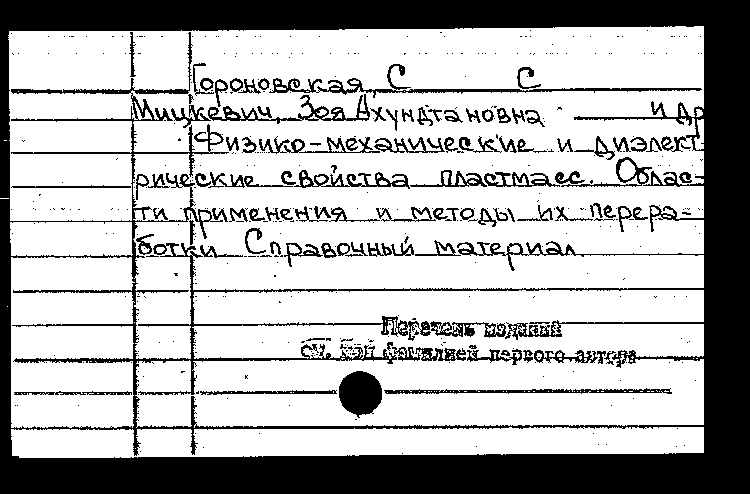 Гороновская, С С
Мицкевич, Зоя Ахундтановна и др
Физико-механические и диэлект-
рические свойства пластмасс. Облас-
ти применения и методы их перера-
ботки Справочный материал.
Перечень изданий
см. под фамилией первого автора